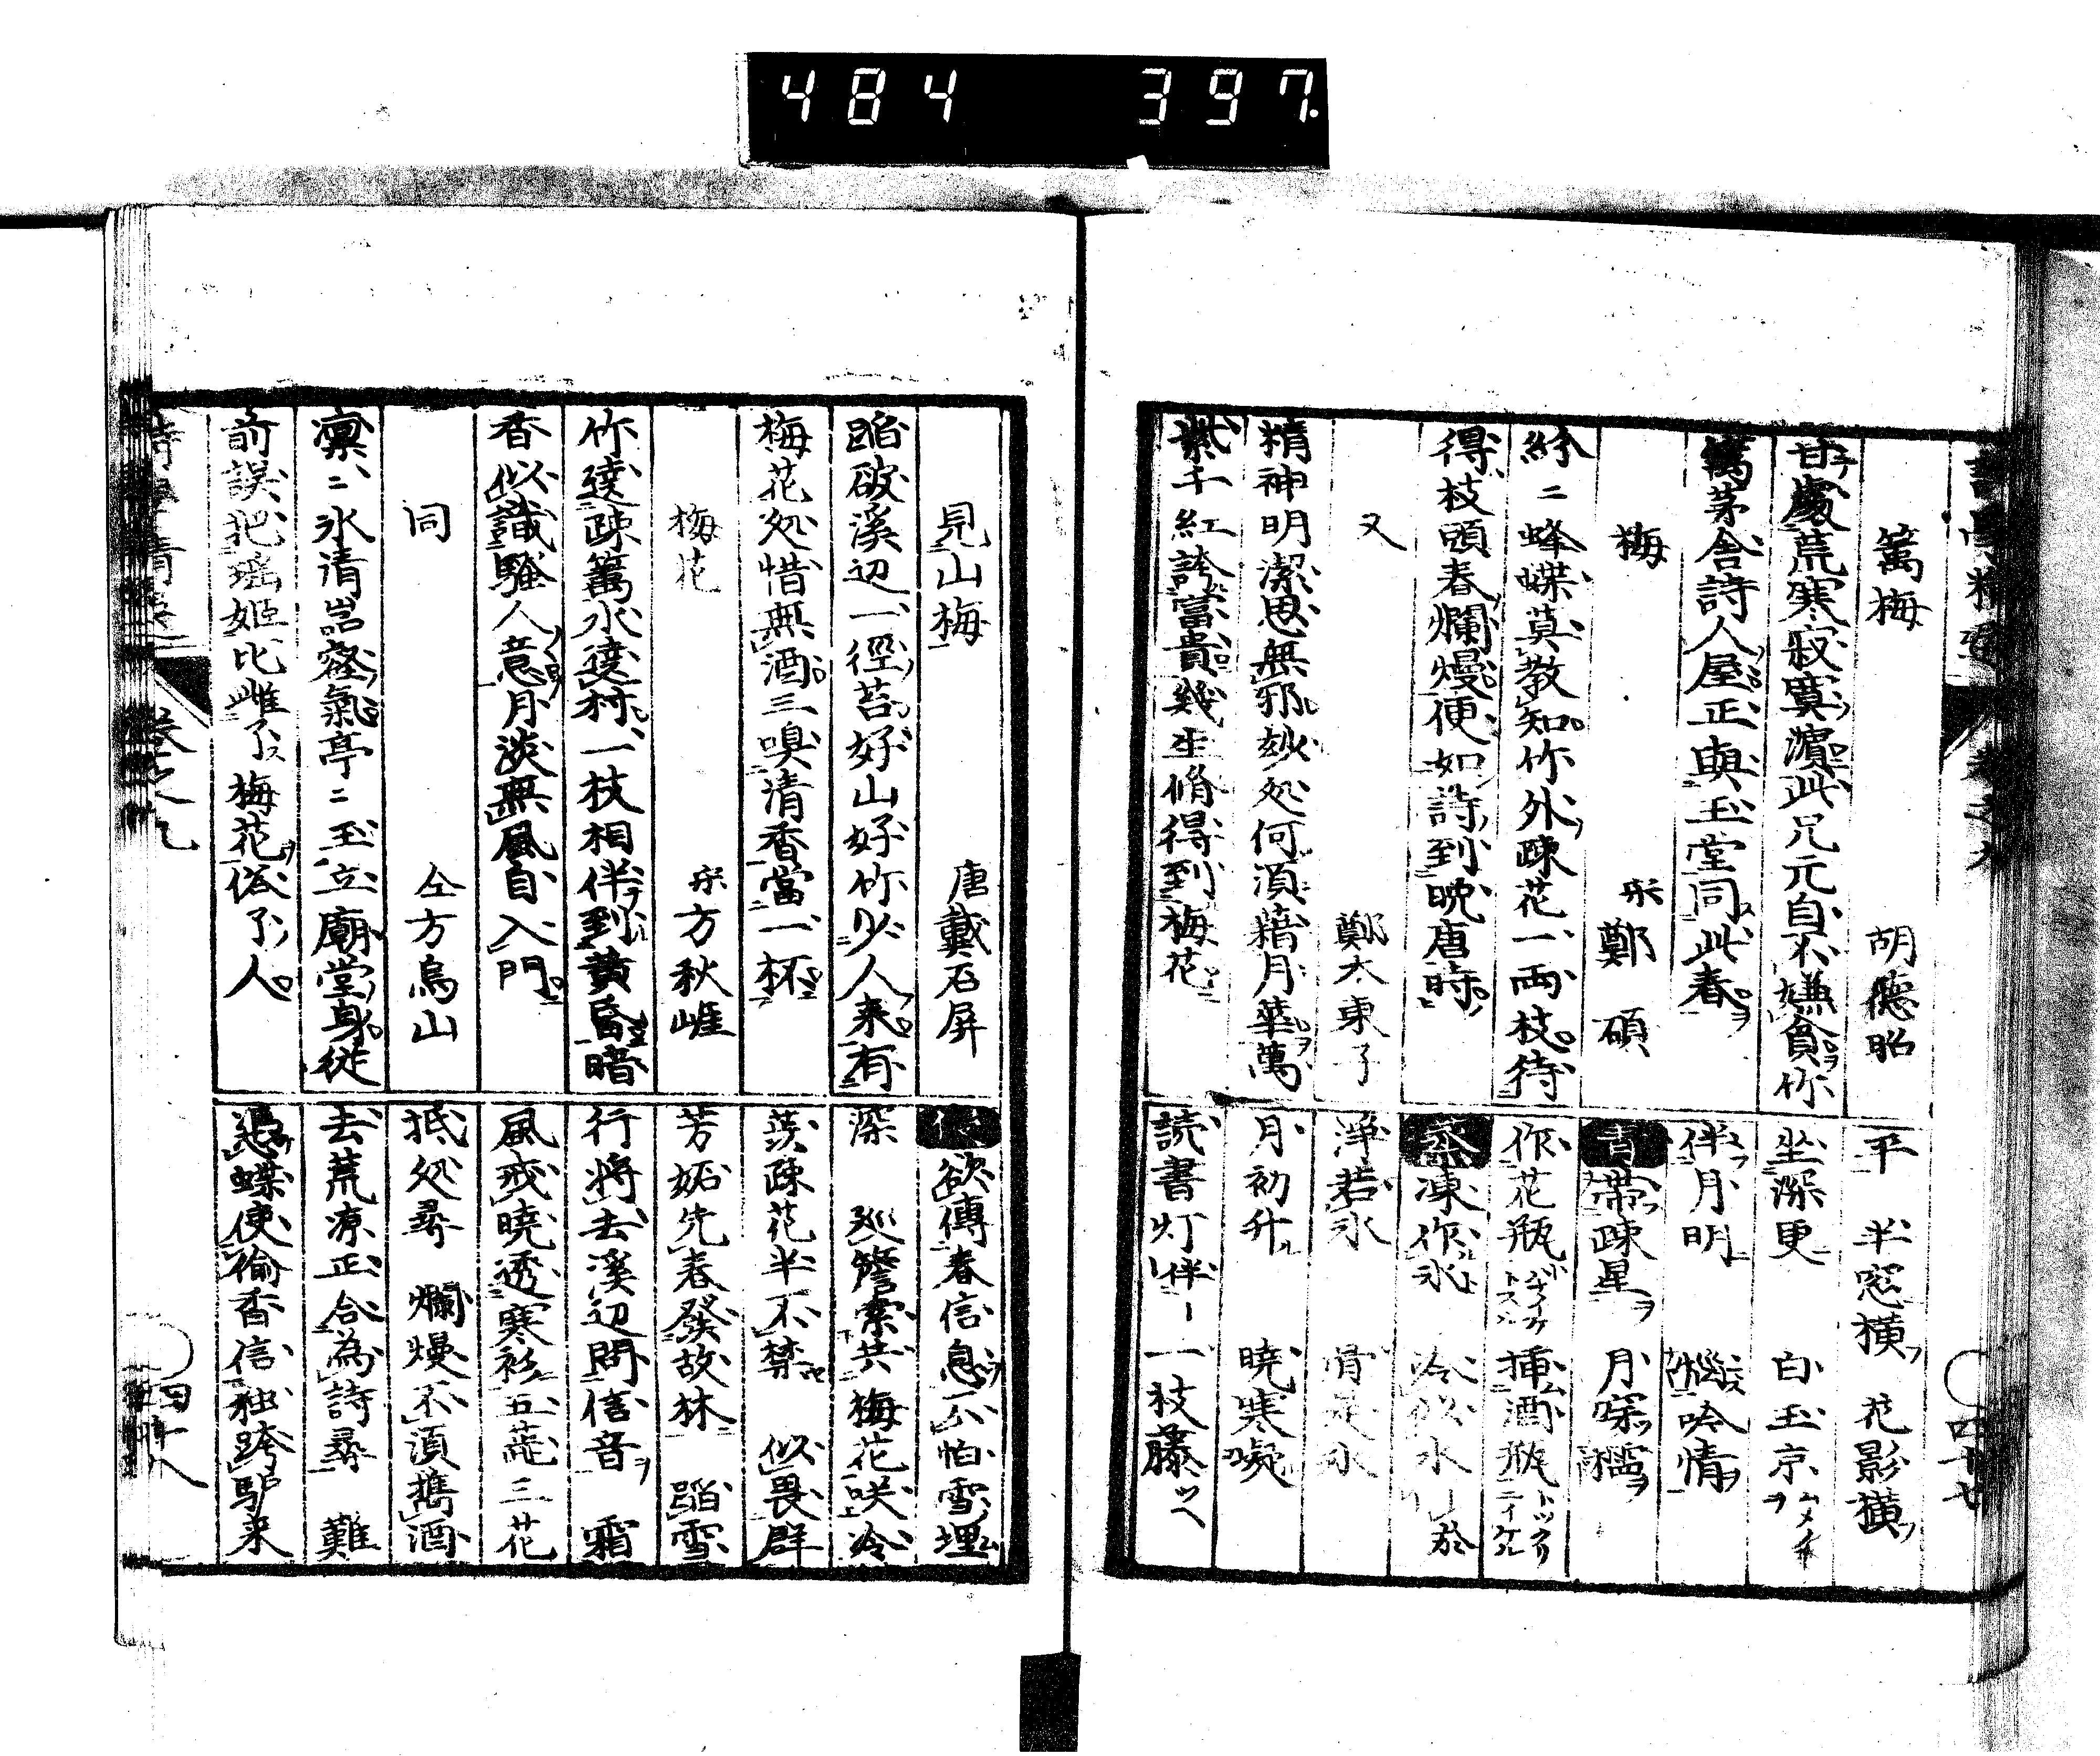 484 397.
籬梅 胡德昭
甘處荒寒寂寞濱此兄元自不嫌貧竹
籬茅舍詩人屋正與玉堂同此春
梅 宋鄭碩
紛〻蜂蝶莫教知竹外疎花一両枝待
得枝頭春爛熳便如詩到晩唐時
又 鄭太東子
精神明潔思無邪妙処何須藉月華萬
紫千紅誇富貴幾生脩得到梅花
平 半窓横 花影横
坐深更 白玉京
伴月明 惱吟情
帯疎星 月窺櫺
作花瓶 挿酒瓶
凍作氷 冷似水
浄若氷 骨是氷
月初升 曉寒凝
読書灯伴 一枝藤
見山梅 唐戴石屏
踏破溪辺一徑苔好山好竹少人来有
梅花処惜無酒三嗅清香當一杯
梅花 宋方秋崕
竹遶疎籬水遶村一枝相伴到黄昏暗
香似識騒人意月淡無風自入門
同 仝方烏山
凛〻氷清岩壑氣亭〻玉立廟堂身従
前誤把瑶姫比雌了梅花俗了人
欲傳春信息不怕雪埋
深 巡簷索共梅花咲冷
蕊疎花半不禁 似畏群
芳妬先春發故林 踏雪
行将去溪辺問信音 霜
風戒曉透寒衫五蕋三花
抵処尋 爛熳不須携酒
去荒凉正合為詩尋 難
遣蝶使偷香信独跨驴来
卷之九
四十八
四十七